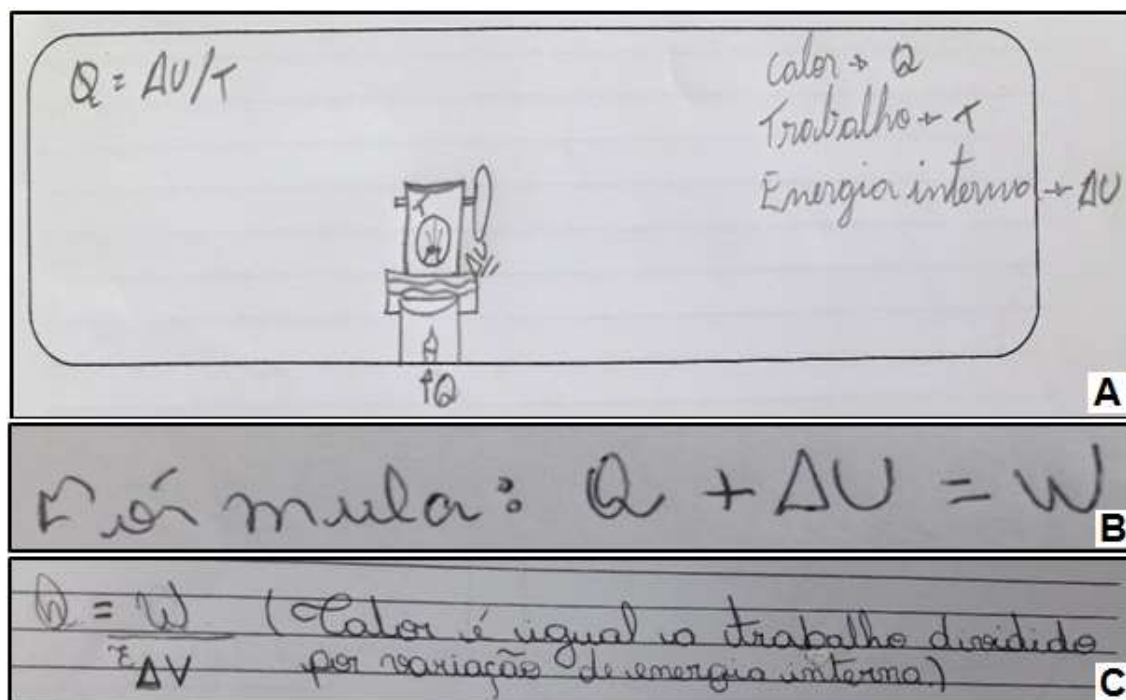 Q = ΔU/T
Calor → Q
Trabalho → T
Energia interna → ΔU
T
ΔU
↑Q
A
Fórmula: Q + ΔU = W
B
Q = W (Calor é igual a trabalho dividido
ΔV por variação de energia interna.)
C